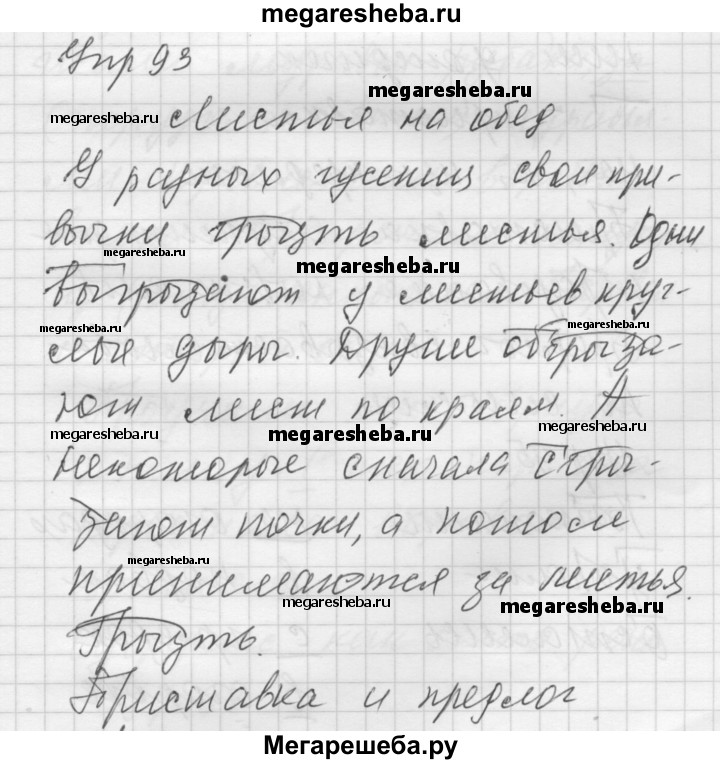 megaresheba.ru
Упр 93
megaresheba.ru
megaresheba.ru
Листья на обед
У разных гусениц свои при-
вычки грызть листья. Одни
megaresheba.ru
megaresheba.ru
выгрызают у листьев круг-
megaresheba.ru
megaresheba.ru
лые дыры. Другие обгрыза-
ют лист по краям. А
megaresheba.ru
megaresheba.ru
megaresheba.ru
некоторые сначала сгры-
зают почки, а потом
megaresheba.ru
принимаются за листья.
megaresheba.ru
megaresheba.ru
Грызть.
Приставка и предлог
Мегарешеба.ру